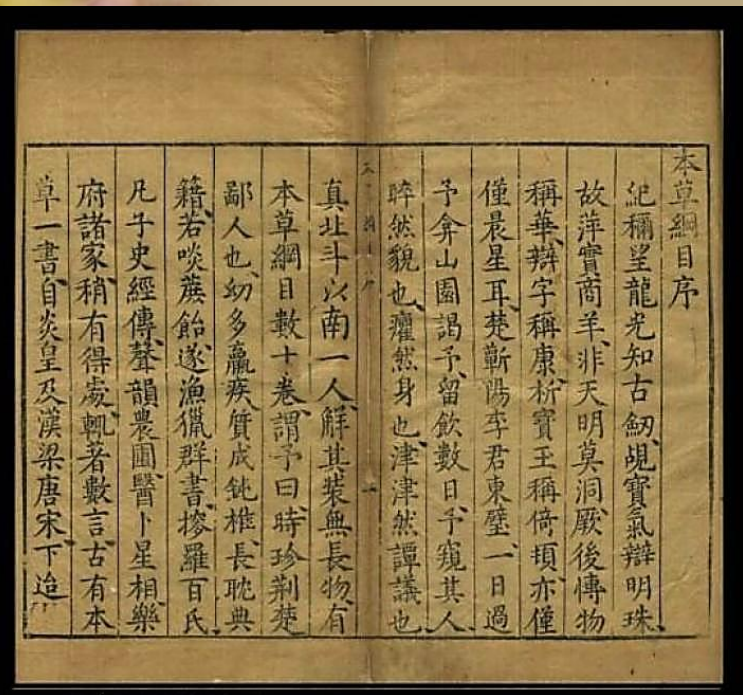 本草綱目序
紀穪望龍光知古劒覘寶氣辯明珠
故萍實商羊非天明莫洞厥後博物
稱華辯字稱康析寶玉稱倚頓亦僅
僅晨星耳楚蘄陽李君東璧一日過
予弇山園謁予留飲數日予窺其人
睟然貌也癯然身也津津然譚議也
真北斗以南一人解其裝無長物有
本草綱目數十卷謂予曰時珍荊楚
鄙人也幼多羸疾質成鈍椎長耽典
籍若啖蔗飴遂漁獵群書搜羅百氏
凡子史經傳聲韻農圃醫卜星相樂
府諸家稍有得處輒著數言古有本
草一書自炎皇及漢梁唐宋下迨